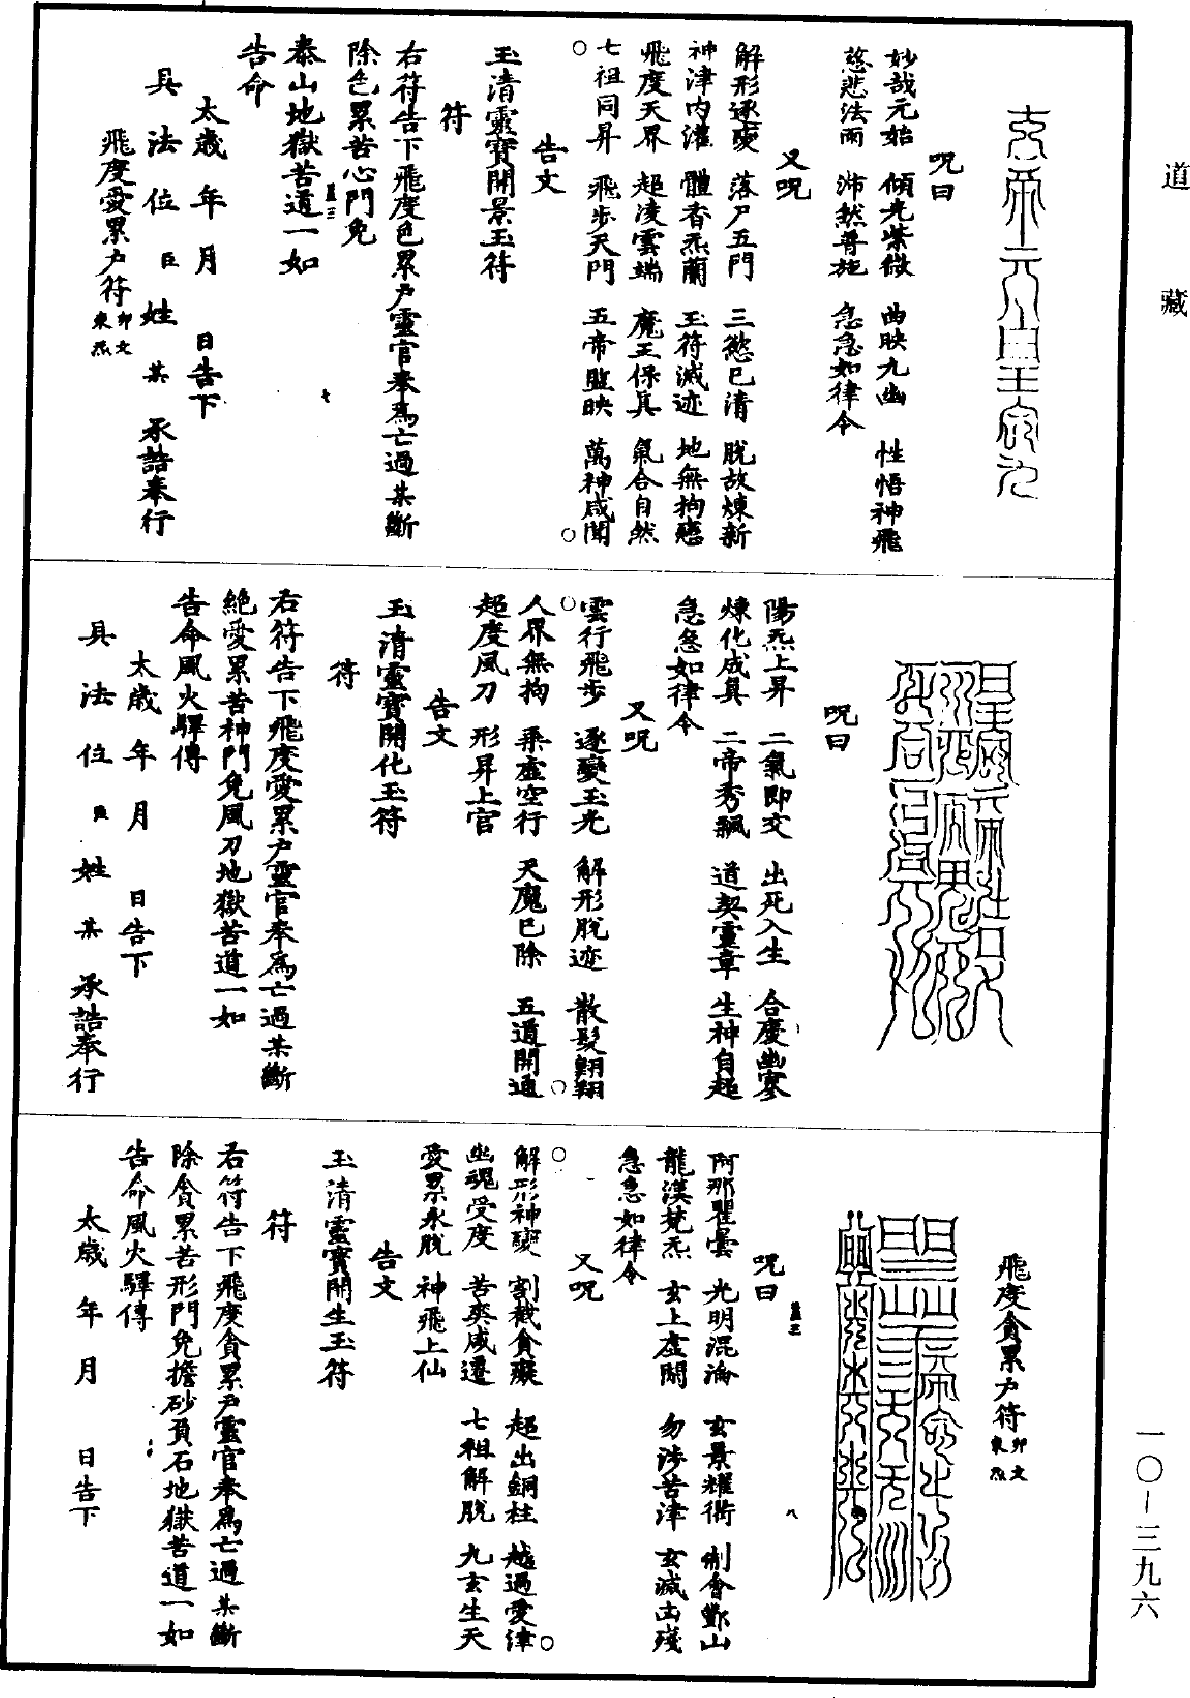 道藏
呪曰
妙哉元始 傾光紫微 曲映九幽 性悟神飛
慈悲法雨 沛然普施 急急如律令
又呪
解形逐變 落尸五門 三慾已清 脫故煉新
神津內灌 體香炁蘭 玉符滅迹 地無拘戀
飛度天界 超凌雲端 魔王保真 氣合自然
七祖同昇 飛步天門 五帝監映 萬神咸聞
告文
玉清靈寶開景玉符
符
右符告下飛度色累戶靈官奉為亡過某斷
除色累苦心門免
泰山地獄苦道一如
告命
太歲 年 月 日告下
具 法 位 臣 姓 某 承誥奉行
飛度愛累戶符 卯文 東炁
七
呪曰
陽炁上昇 二氣即交 出死入生 合慶幽寥
煉化成真 二帝秀飄 道契靈章 生神自超
急急如律令
又呪
雲行飛步 逐變玉光 解形脫迹 散髮翱翔
人界無拘 乘虛空行 天魔已除 五道開通
超度風刀 形昇上宫
告文
玉清靈寶開化玉符
符
右符告下飛度愛累戶靈官奉為亡過某斷
絕愛累苦神門免風刀地獄苦道一如
告命風火驛傳
太歲 年 月 日告下
具 法 位 臣 姓 某 承誥奉行
飛度貪累戶符 卯文 東炁
呪曰
阿那瞿曇 光明混淪 玄景耀衢 制會酆山
龍漢梵炁 玄上虛關 勿涉苦津 玄滅由殘
急急如律令
八
又呪
解形神變 割截貪癡 超出銅柱 越過愛津
幽魂受度 苦爽咸遷 七祖解脫 九玄生天
愛累永脫 神飛上仙
告文
玉清靈寶開生玉符
符
右符告下飛度貪累戶靈官奉為亡過某斷
除貪累苦形門免擔砂負石地獄苦道一如
告命風火驛傳
太歲 年 月 日告下
一〇－三九六